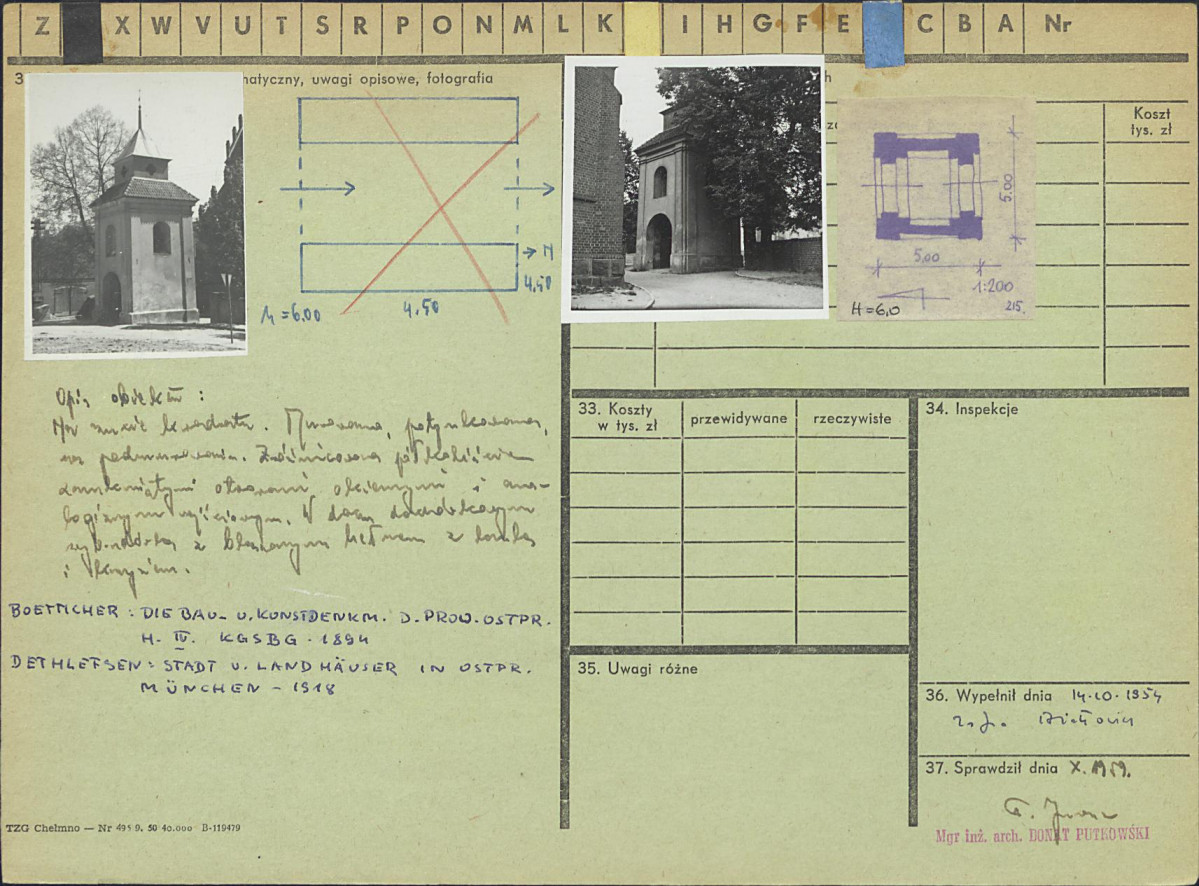 Z X W V U T S R P O N M L K I H G F E C B A Nr
3 matyczny, uwagi opisowe, fotografia
h
Koszt
tys. zł
h = 6.00
4,50
4,50
5.00
5,00
1:200
215.
H = 6,0
Opis obiektu :
Na rzucie kwadratu. Murowana, potynkowana,
na podmurowaniu.
zamkniętymi otworami okiennymi i ana-
logicznym wejściowym. W dachu
z blaszanym hełmem z
i krzyżem.
BOETTICHER : DIE BAU- U. KUNSTDENKM. D. PROV. OSTPR.
H. IV. KGSBG. 1894
DETHLEFSEN : STADT U. LANDHÄUSER IN OSTPR.
MÜNCHEN - 1918
33. Koszty
w tys. zł
przewidywane
rzeczywiste
34. Inspekcje
35. Uwagi różne
36. Wypełnił dnia 14.10.1959
37. Sprawdził dnia X.1959.
Mgr inż. arch. DONAT PUTKOWSKI
TZG Chełmno — Nr 495 9. 50 40.000 B-119479